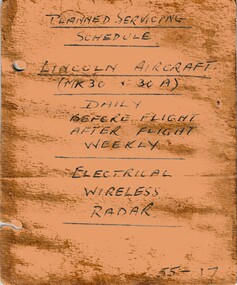 PLANNED SERVICING
SCHEDULE
LINCOLN AIRCRAFT.
(MK30 & 30A)
DAILY
BEFORE FLIGHT
AFTER FLIGHT
WEEKLY
ELECTRICAL
WIRELESS
RADAR
55-17